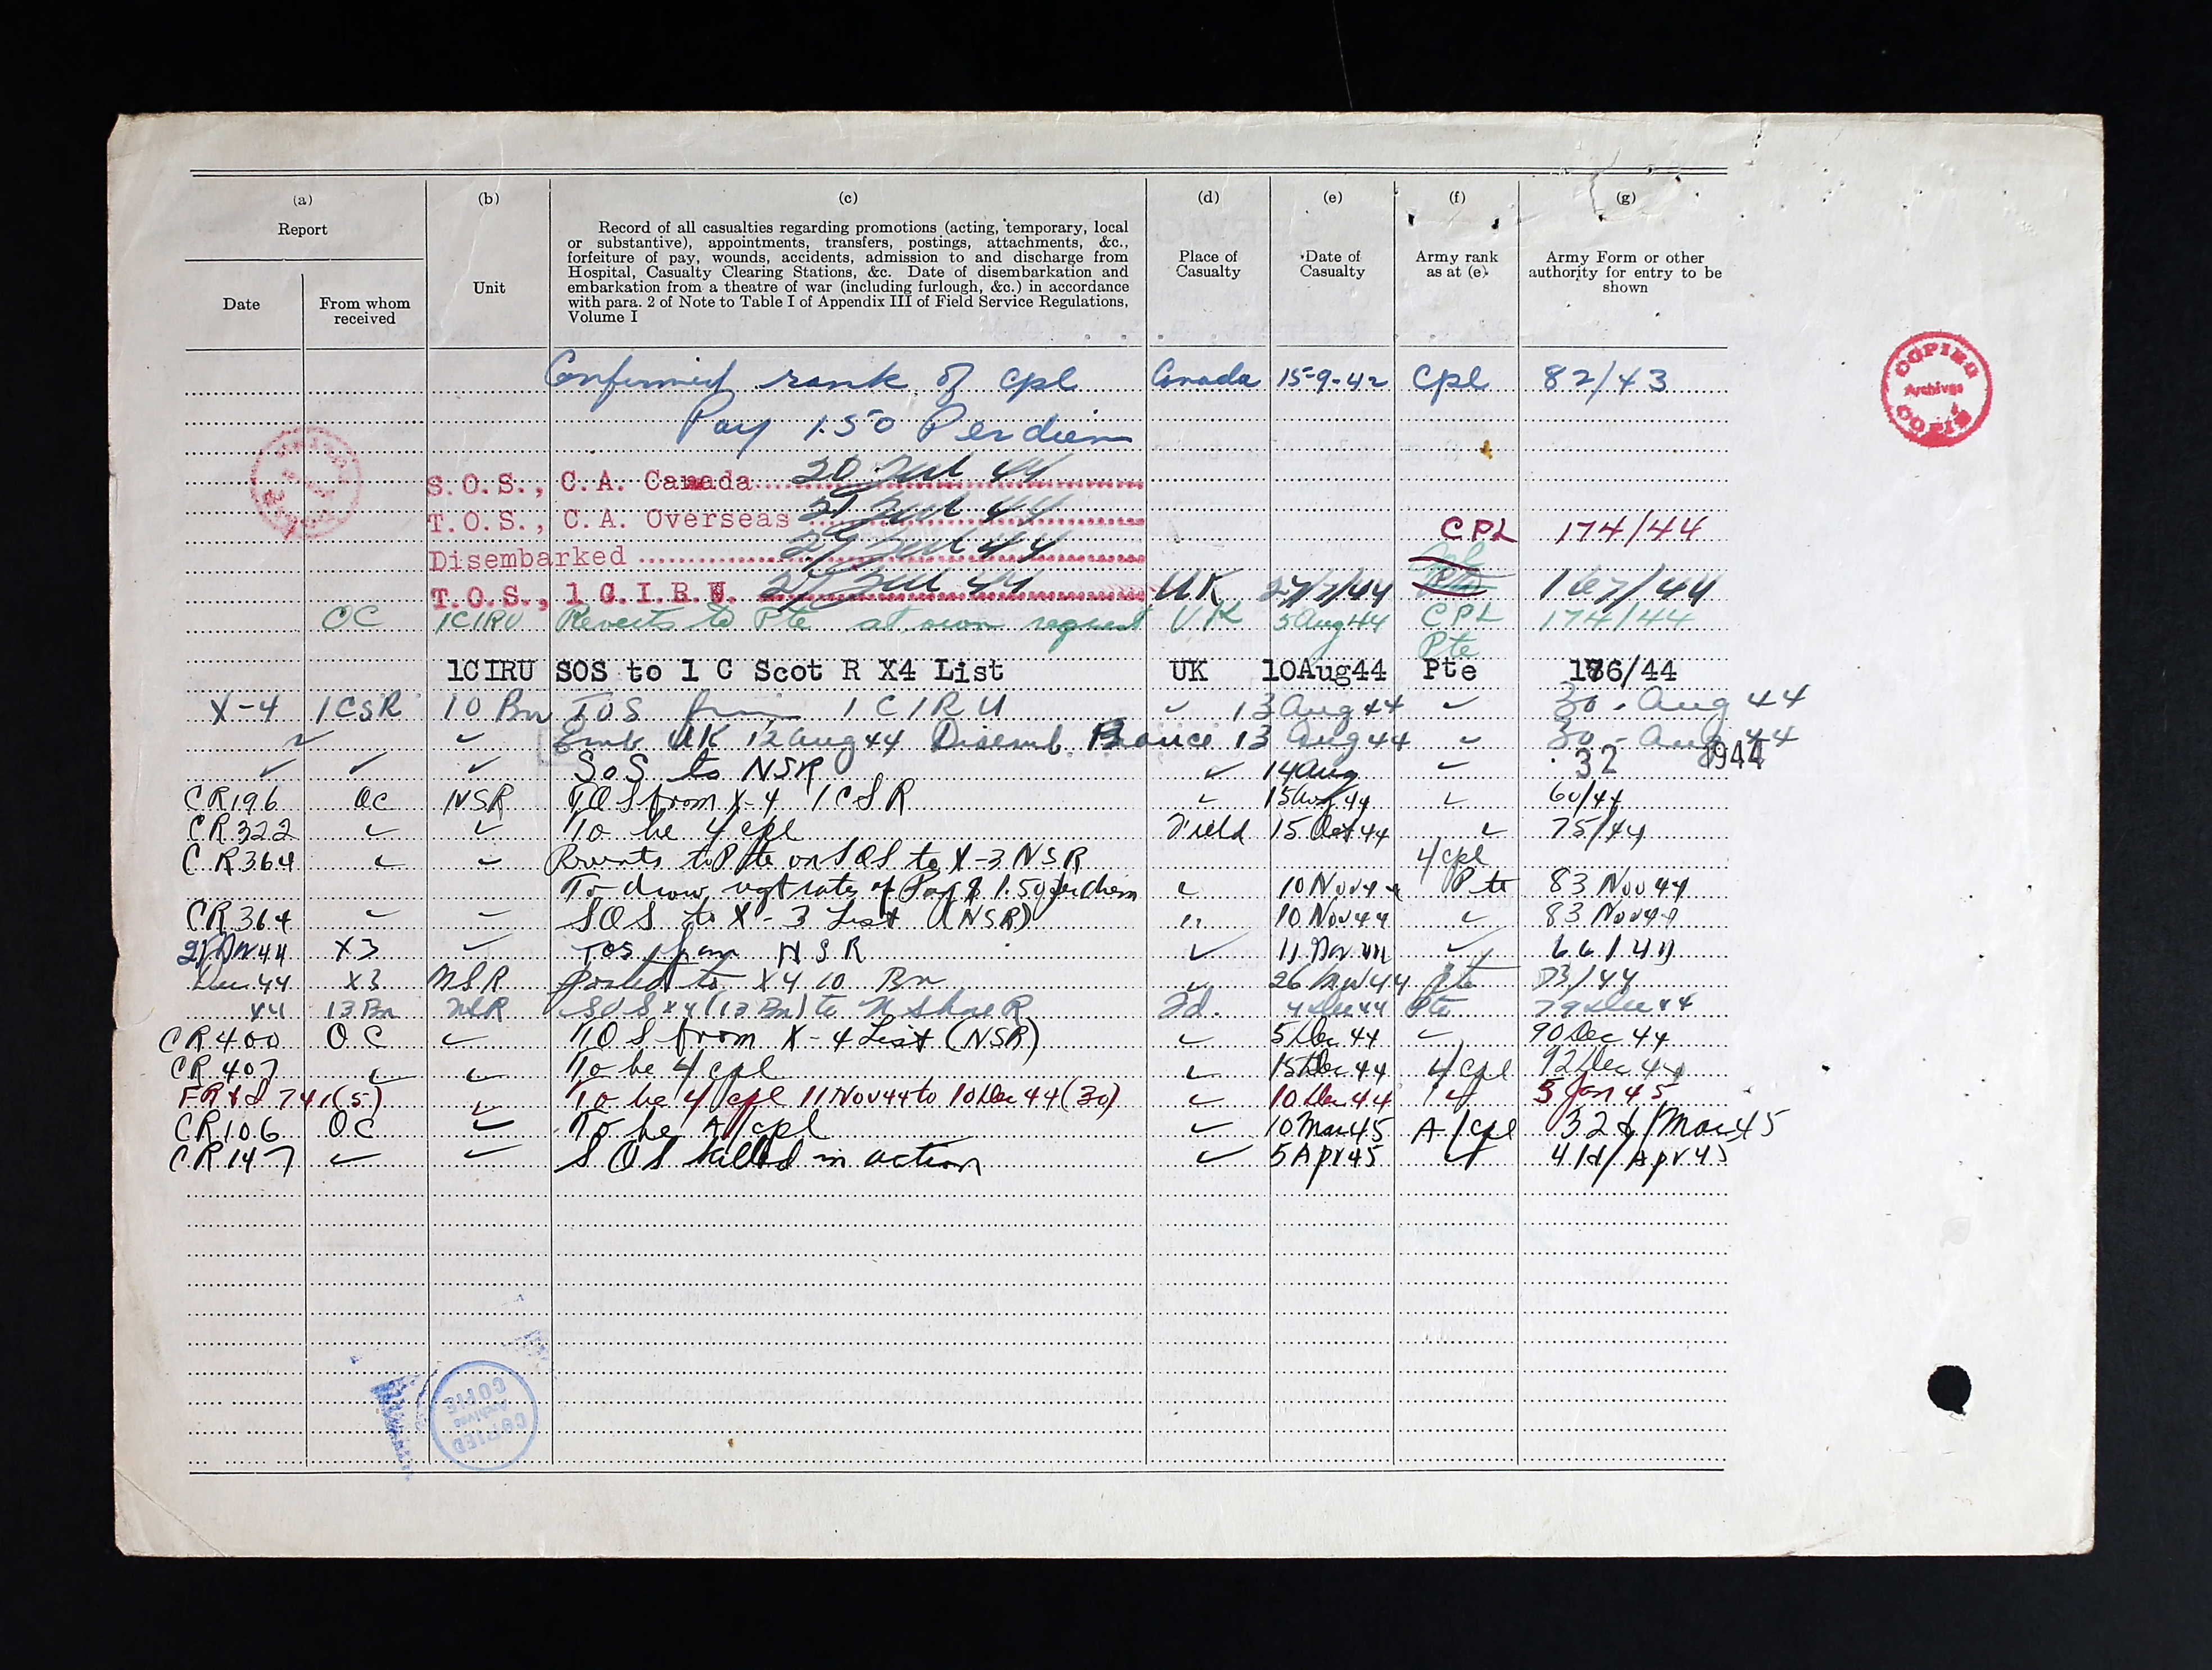 (a) (b) (c) (d) (e) (f) (g)
Report
Date
From whom
received
Unit
Record of all casualties regarding promotions (acting, temporary, local
or substantive), appointments, transfers, postings, attachments, &c.,
forfeiture of pay, wounds, accidents, admission to and discharge from
Hospital, Casualty Clearing Stations, &c. Date of disembarkation and
embarkation from a theatre of war (including furlough, &c.) in accordance
with para. 2 of Note to Table I of Appendix III of Field Service Regulations,
Volume I
Place of
Casualty
Date of
Casualty
Army rank
as at (e)
Army Form or other
authority for entry to be
shown
Confirmed rank of cpl Canada 15-9-42 Cpl 82/43
Pay 1.50 Per diem
S.O.S., C.A. Canada 20 Jul 44
T.O.S., C.A. Overseas 21 Jul 44 CPL 174/44
Disembarked 27 Jul 44
T.O.S., 1 C.I.R.U. 27 Jul 44 UK 27/7/44 167/44
OC 1CIRU Reverts to Pte at own request UK 5 Aug 44 CPL 174/44
Pte
1CIRU SOS to 1 C Scot R X4 List UK 10Aug44 Pte 186/44
X-4 1CSR 10 Bn TOS from 1 CIRU ✓ 13 Aug 44 ✓ 30 - Aug 44
✓ ✓ Emb UK 12 Aug 44 Disemb. France 13 Aug 44 ✓ 30 - Aug 44
✓ ✓ ✓ SOS to NSR ✓ 14 Aug ✓ 32 1944
CR196 OC NSR TOS from X-4 1CSR ✓ 15 Aug 44 ✓ 60/44
CR322 ✓ ✓ To be L/cpl Field 15 Oct 44 ✓ 75/44
CR364 ✓ ✓ Reverts to Pte on SOS to X-3 NSR L/cpl
To draw rgt rate of Pay $ 1.50 per diem ✓ 10 Nov 44 Pte 83 Nov 44
CR364 ✓ ✓ SOS to X-3 List (NSR) " 10 Nov 44 ✓ 83 Nov 44
21 Nov 44 X3 ✓ TOS from NSR ✓ 11 Nov 44 ✓ 66/44
Dec 44 X3 NSR posted to X4 10 Bn ✓ 26 Nov 44 Pte 73/44
44 13 Bn NSR SOS X4 (13 Bn) to N Shore R Fd. 4 Dec 44 Pte 79 Dec 44
CR400 OC ✓ TOS from X-4 List (NSR) ✓ 5 Dec 44 ✓ 90 Dec 44
CR407 ✓ ✓ To be L/cpl ✓ 15 Dec 44 L/cpl 92 Dec 44
741(5) ✓ To be L/cpl 11 Nov 44 to 10 Dec 44 (30) ✓ 10 Dec 44 ✓ 5 Jan 45
CR106 OC ✓ To be A/cpl ✓ 10 Mar 45 A/cpl 32 /Mar 45
CR147 ✓ ✓ SOS killed in action ✓ 5 Apr 45 ✓ 41 /Apr 45
COPIED
Archives
COPIE
COPIED
Archives
COPIE